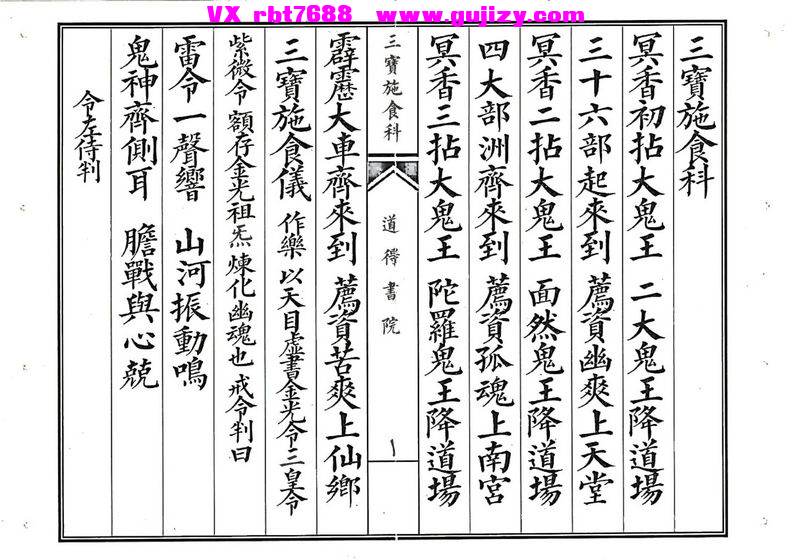 VX rbt7688 www.gujizy.com
三寶施食科
冥香初拈大鬼王 二大鬼王降道場
三十六部起來到 薦資幽爽上天堂
冥香二拈大鬼王 面然鬼王降道場
四大部洲齊來到 薦資孤魂上南宮
冥香三拈大鬼王 陀羅鬼王降道場
三寶施食科 道得書院 一
霹靂大車齊來到 薦資苦爽上仙鄉
三寶施食儀 作樂 以天目虛書金光令三皇令
紫微令 額存金光祖炁煉化幽魂也 戒令判曰
雷令一聲響 山河振動鳴
鬼神齊側耳 膽戰與心兢
令左侍判